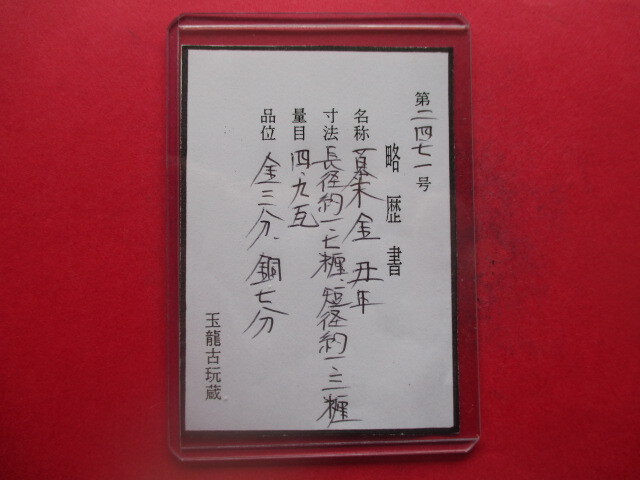 第二四七一号
略歴書
名称 幕末金 丑年
寸法 長径約一.七糎、短径約一.三糎
量目 四.九瓦
品位 金三分、銅七分
玉龍古玩蔵